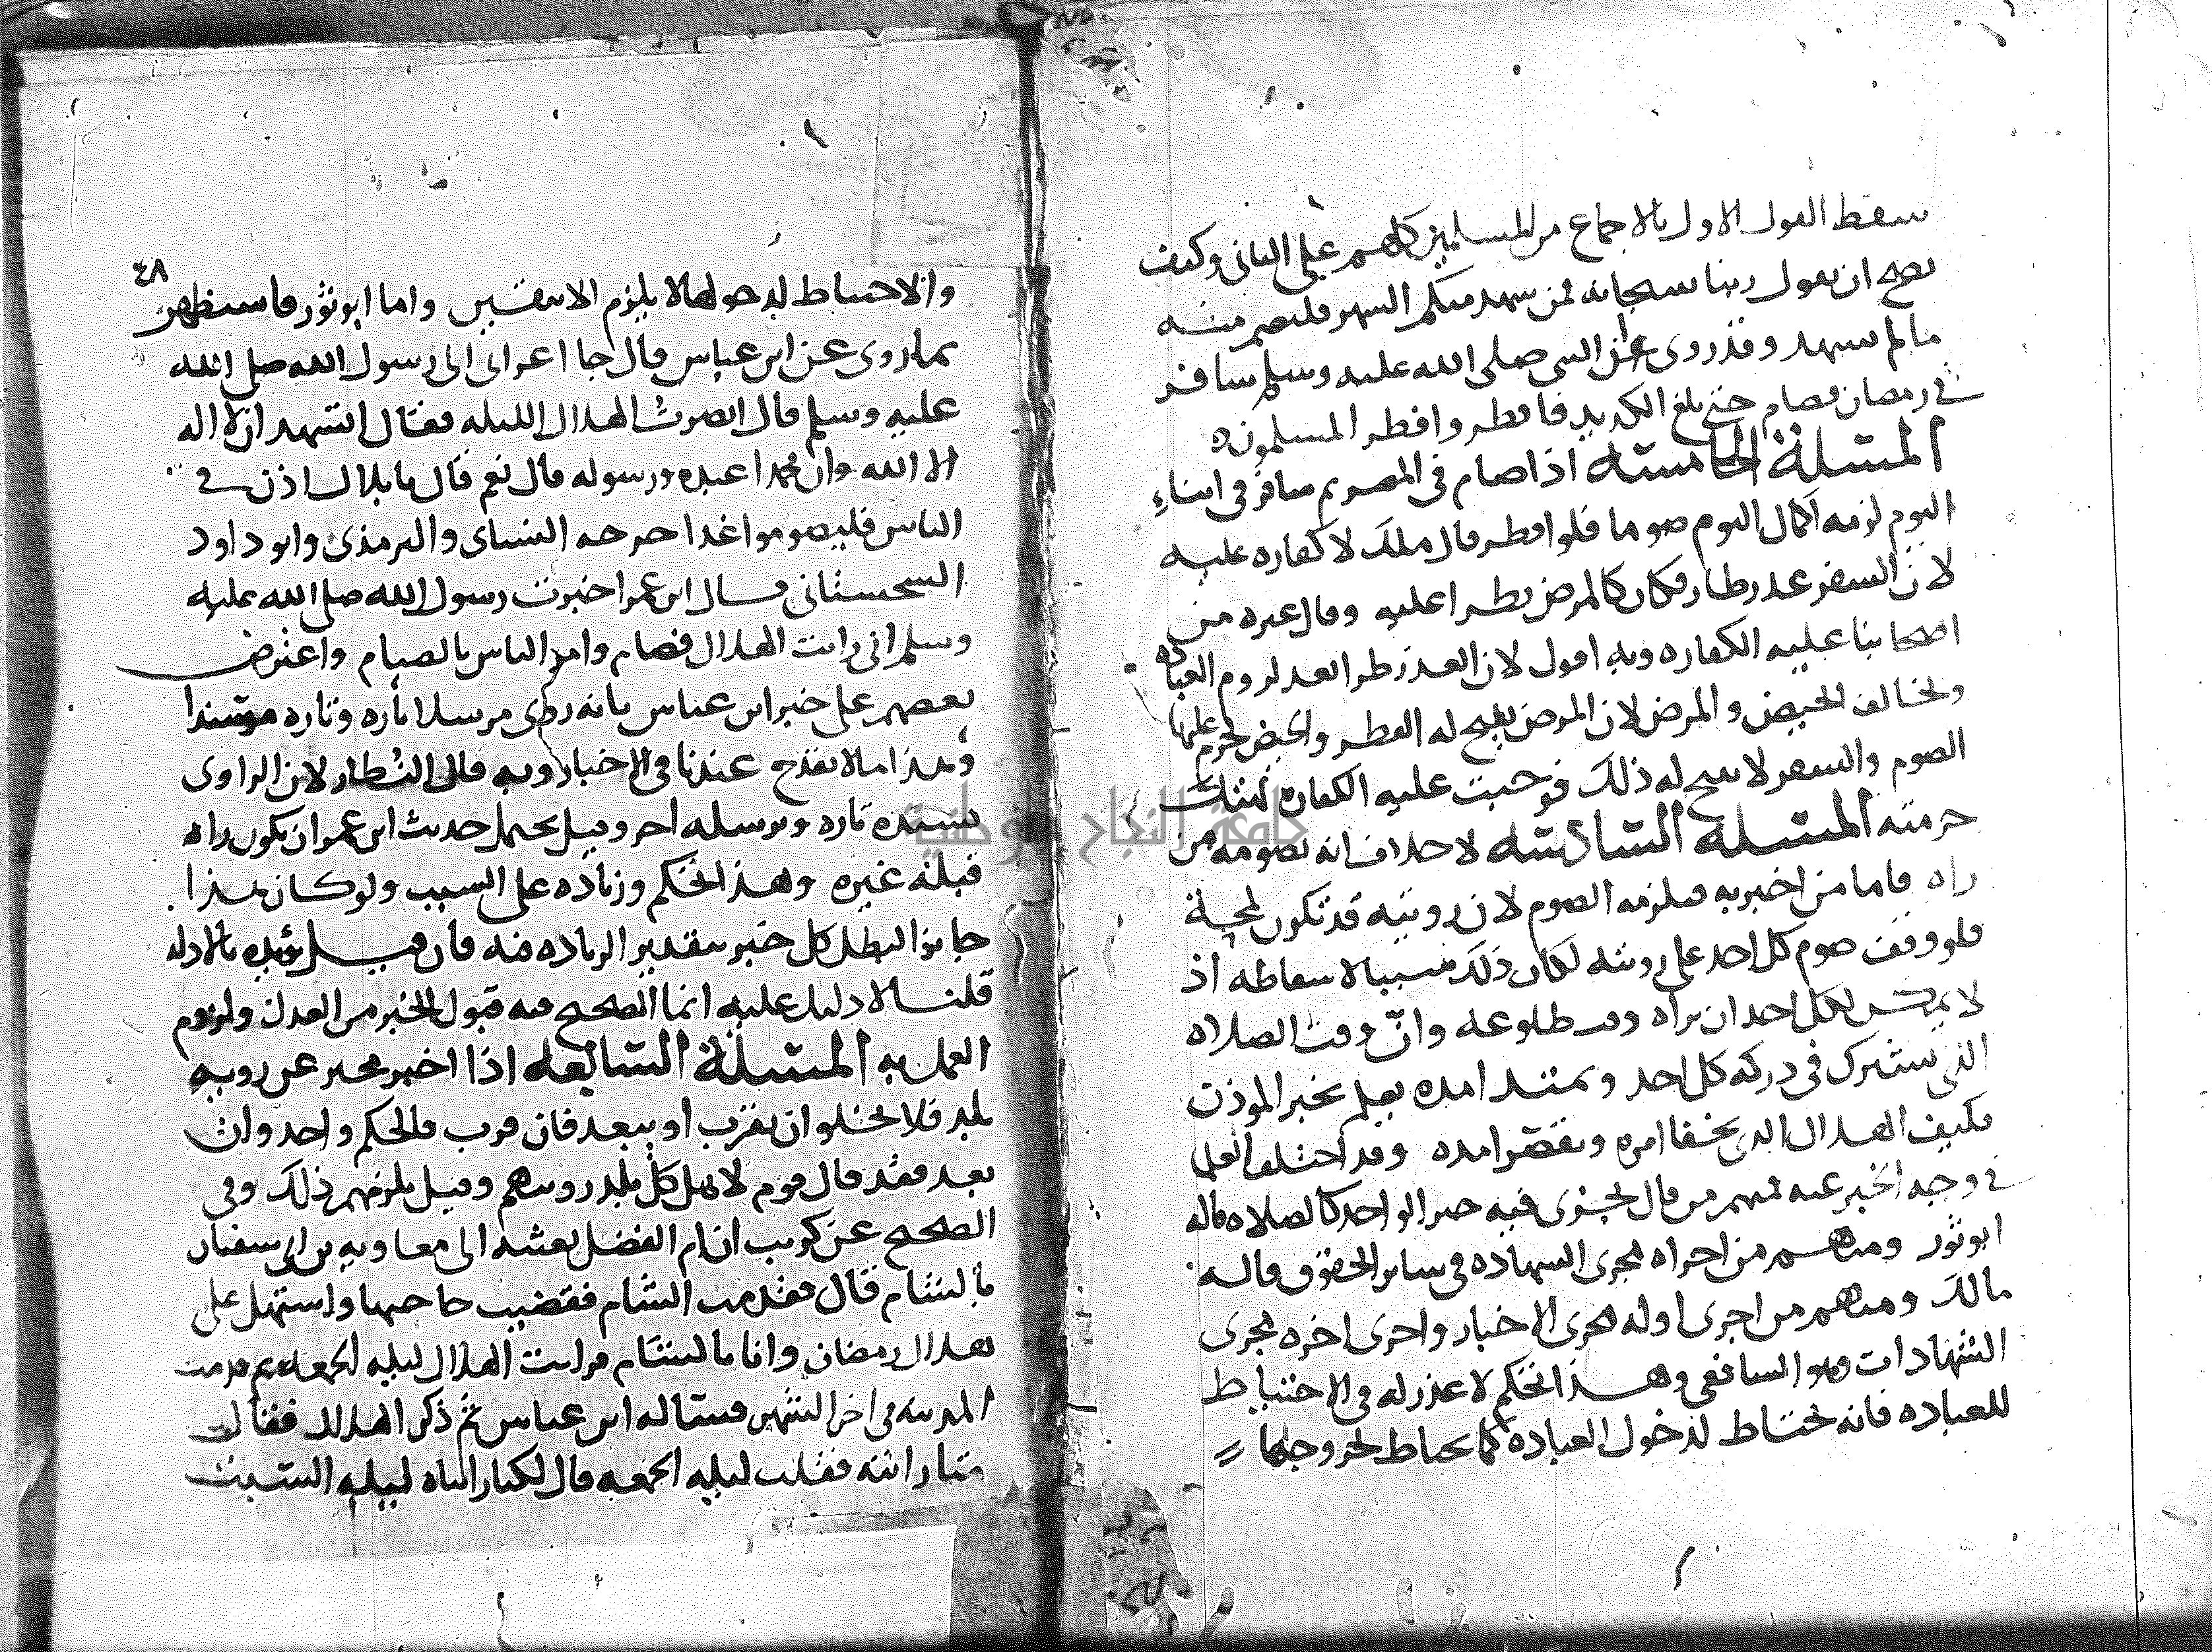 سقط القول الاول بالاجماع من المسلمين كلهم على الثاني وكيف
يصح ان يقول ربنا سبحانه فمن شهد منكم الشهر فليصم منه
ما لم يشهد وقد روي عن النبي صلى الله عليه وسلم سافر
في رمضان فصام حتى بلغ الكديد فافطر وافطر المسلمون
المسئلة الخامسة اذا صام في المصر ثم سافر في اثناء
اليوم لزمه اكمال اليوم صوما فلو افطر قال ملك لا كفاره عليه
لان السفر عذر طار فكان كالمرض يطرا عليه وقال غيره من
اصحابنا عليه الكفاره وبه اقول لان العذر طرا بعد لزوم العباده
ويخالف الحيض والمرض لان المرض يبيح له الفطر والحيض يحرم عليها
الصوم والسفر لا يبيح له ذلك فوجبت عليه الكفارة لهتك
حرمته المسئلة السادسة لا خلاف انه يصومه من
راه فاما من اخبر به فيلزمه الصوم لان رويته قد تكون لمحة
فلو وقف صوم كل احد على رويته لكان ذلك سببا لاسقاطه اذ
لا يمكن لكل احد ان يراه وقت طلوعه وان وقت الصلاه
الذي يشترك في دركه كل احد ويمتد امده يعلم بخبر الموذن
فكيف الهلال الذي يخفا امره ويقصر امده وقد اختلف العلما
في وجه الخبر عنه فمنهم من قال يجزي فيه خبر الواحد كالصلاه قاله
ابو ثور ومنهم من اجراه مجرى الشهاده في ساير الحقوق قاله
مالك ومنهم من اجرى اوله مجرى الاخبار واجرى اخره مجرى
الشهادات وهو الشافعي وهذا تحكم لا عذر له في الاحتياط
للعباده فانه يحتاط لدخول العبادة كما يحتاط لخروجها
٤٨
والاحتياط لدخولها الا يلزم الا بيقين واما ابو ثور فاستظهر
بما روي عن ابن عباس قال جا اعرابي الى رسول الله صلى الله
عليه وسلم قال ابصرت الهلال الليله فقال اتشهد ان لا اله
الا الله وان محمدا عبده ورسوله قال نعم قال يا بلال اذن في
الناس فليصوموا غدا خرجه النساي والترمذي وابو داود
السجستاني وقال ابن عمر اخبرت رسول الله صلى الله عليه
وسلم اني رايت الهلال فصام وامر الناس بالصيام واعترض
بعضهم على خبر ابن عباس بانه روي مرسلا تاره وتاره مسندا
وهذا ما لا يقدح عندنا في الاخبار وبه قال النظار لان الراوي
يسنده تاره ويرسله اخر وقيل يحتمل حديث ابن عمر ان يكون راه
قبله غيره وهذا تحكم وزياده على السبب ولو كان هذا
جايزا لبطل كل خبر بتقدير الزياده فيه فان قيل نويده بالادله
قلنا لا دليل عليه انما الصحيح فيه قبول الخبر من العدل ولزوم
العمل به المسئلة السابعة اذا اخبر مخبر عن روية
بلد فلا يخلو ان يقرب او يبعد فان قرب فالحكم واحد وان
بعد فقد قال قوم لاهل كل بلد رويتهم وقيل يلزمهم ذلك وفي
الصحيح عن كريب ان ام الفضل بعثته الى معاويه بن ابي سفيان
بالشام قال فقدمت الشام فقضيت حاجتها واستهل علي
هلال رمضان وانا بالشام فرايت الهلال ليله الجمعه ثم قدمت
المدينه في اخر الشهر فساله ابن عباس ثم ذكر الهلال فقال
متى رايته فقلت ليله الجمعه قال لكنا راناه ليله السبت